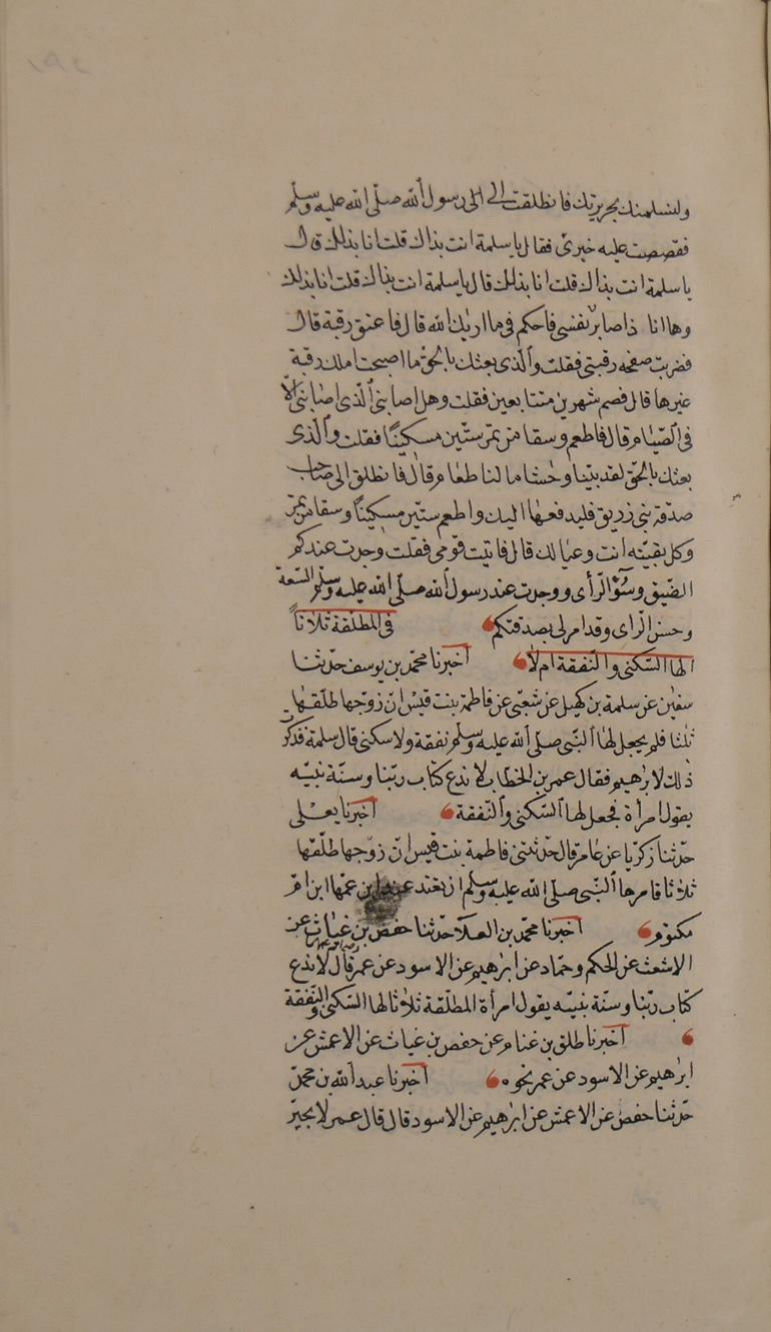 ولنسلمنك بجريرتك فانطلقت الى الى رسول الله صلى الله عليه وسلم
فقصصت عليه خبرى فقال يا سلمة انت بذاك قلت انا بذلك قال
يا سلمة انت بذاك قلت انا بذلك قال يا سلمة انت بذاك قلت انا بذلك
وها انا ذا صابر نفسى فاحكم فى ما اريك الله قال فاعتق رقبة قال
فضربت صفحه رقبتى فقلت والذى بعثك بالحق ما اصبحت املك رقبة
غيرها قال فصم شهرين متتابعين فقلت وهل اصابنى الذى اصابنى الا
فى الصيام قال فاطعم وسقا من تمر ستين مسكينا فقلت والذى
بعثك بالحق لقد بتنا وحشا ما لنا طعام قال فانطلق الى صاحب
صدقة بنى زريق فليدفعها اليك واطعم ستين مسكينا وسقا من تمر
وكل بقيته انت وعيالك قال فاتيت قومى فقلت وجدت عندكم
الضيق وسوء الرأى ووجدت عند رسول الله صلى الله عليه وسلم السعة
وحسن الراى وقد امر لى بصدقتكم فى المطلقة ثلاثا
الها السكنى والنفقة ام لا اخبرنا محمد بن يوسف حدثنا
سفين عن سلمة بن كهيل عن شعبى عن فاطمة بنت قيس ان زوجها طلقها
ثلثا فلم يجعل لها النبى صلى الله عليه وسلم نفقة ولا سكنى قال سلمة فذكرت
ذلك لابرهيم فقال عمر بن الخطاب لا ندع كتاب ربنا وسنة نبيه
بقول امرأة فجعل لها السكنى والنفقة اخبرنا يعلى
حدثنا زكريا عن عامر قال حدثتنى فاطمة بنت قيس ان زوجها طلقها
ثلاثا فامرها النبى صلى الله عليه وسلم ان تعتد عند ابن عمها ابن ام
مكتوم اخبرنا محمد بن العلا حدثنا حفص بن غياث عن
الاشعث عن الحكم وحماد عن ابرهيم عن الاسود عن عمر قال لا ندع
كتاب ربنا وسنة نبيه بقول امرأة المطلقة ثلاثا لها السكنى والنفقة
اخبرنا طلق بن غنام عن حفص بن غياث عن الاعمش عن
ابرهيم عن الاسود عن عمر نحوه اخبرنا عبد الله بن محمد
حدثنا حفص عن الاعمش عن ابرهيم عن الاسود قال قال عمر لا نجيز